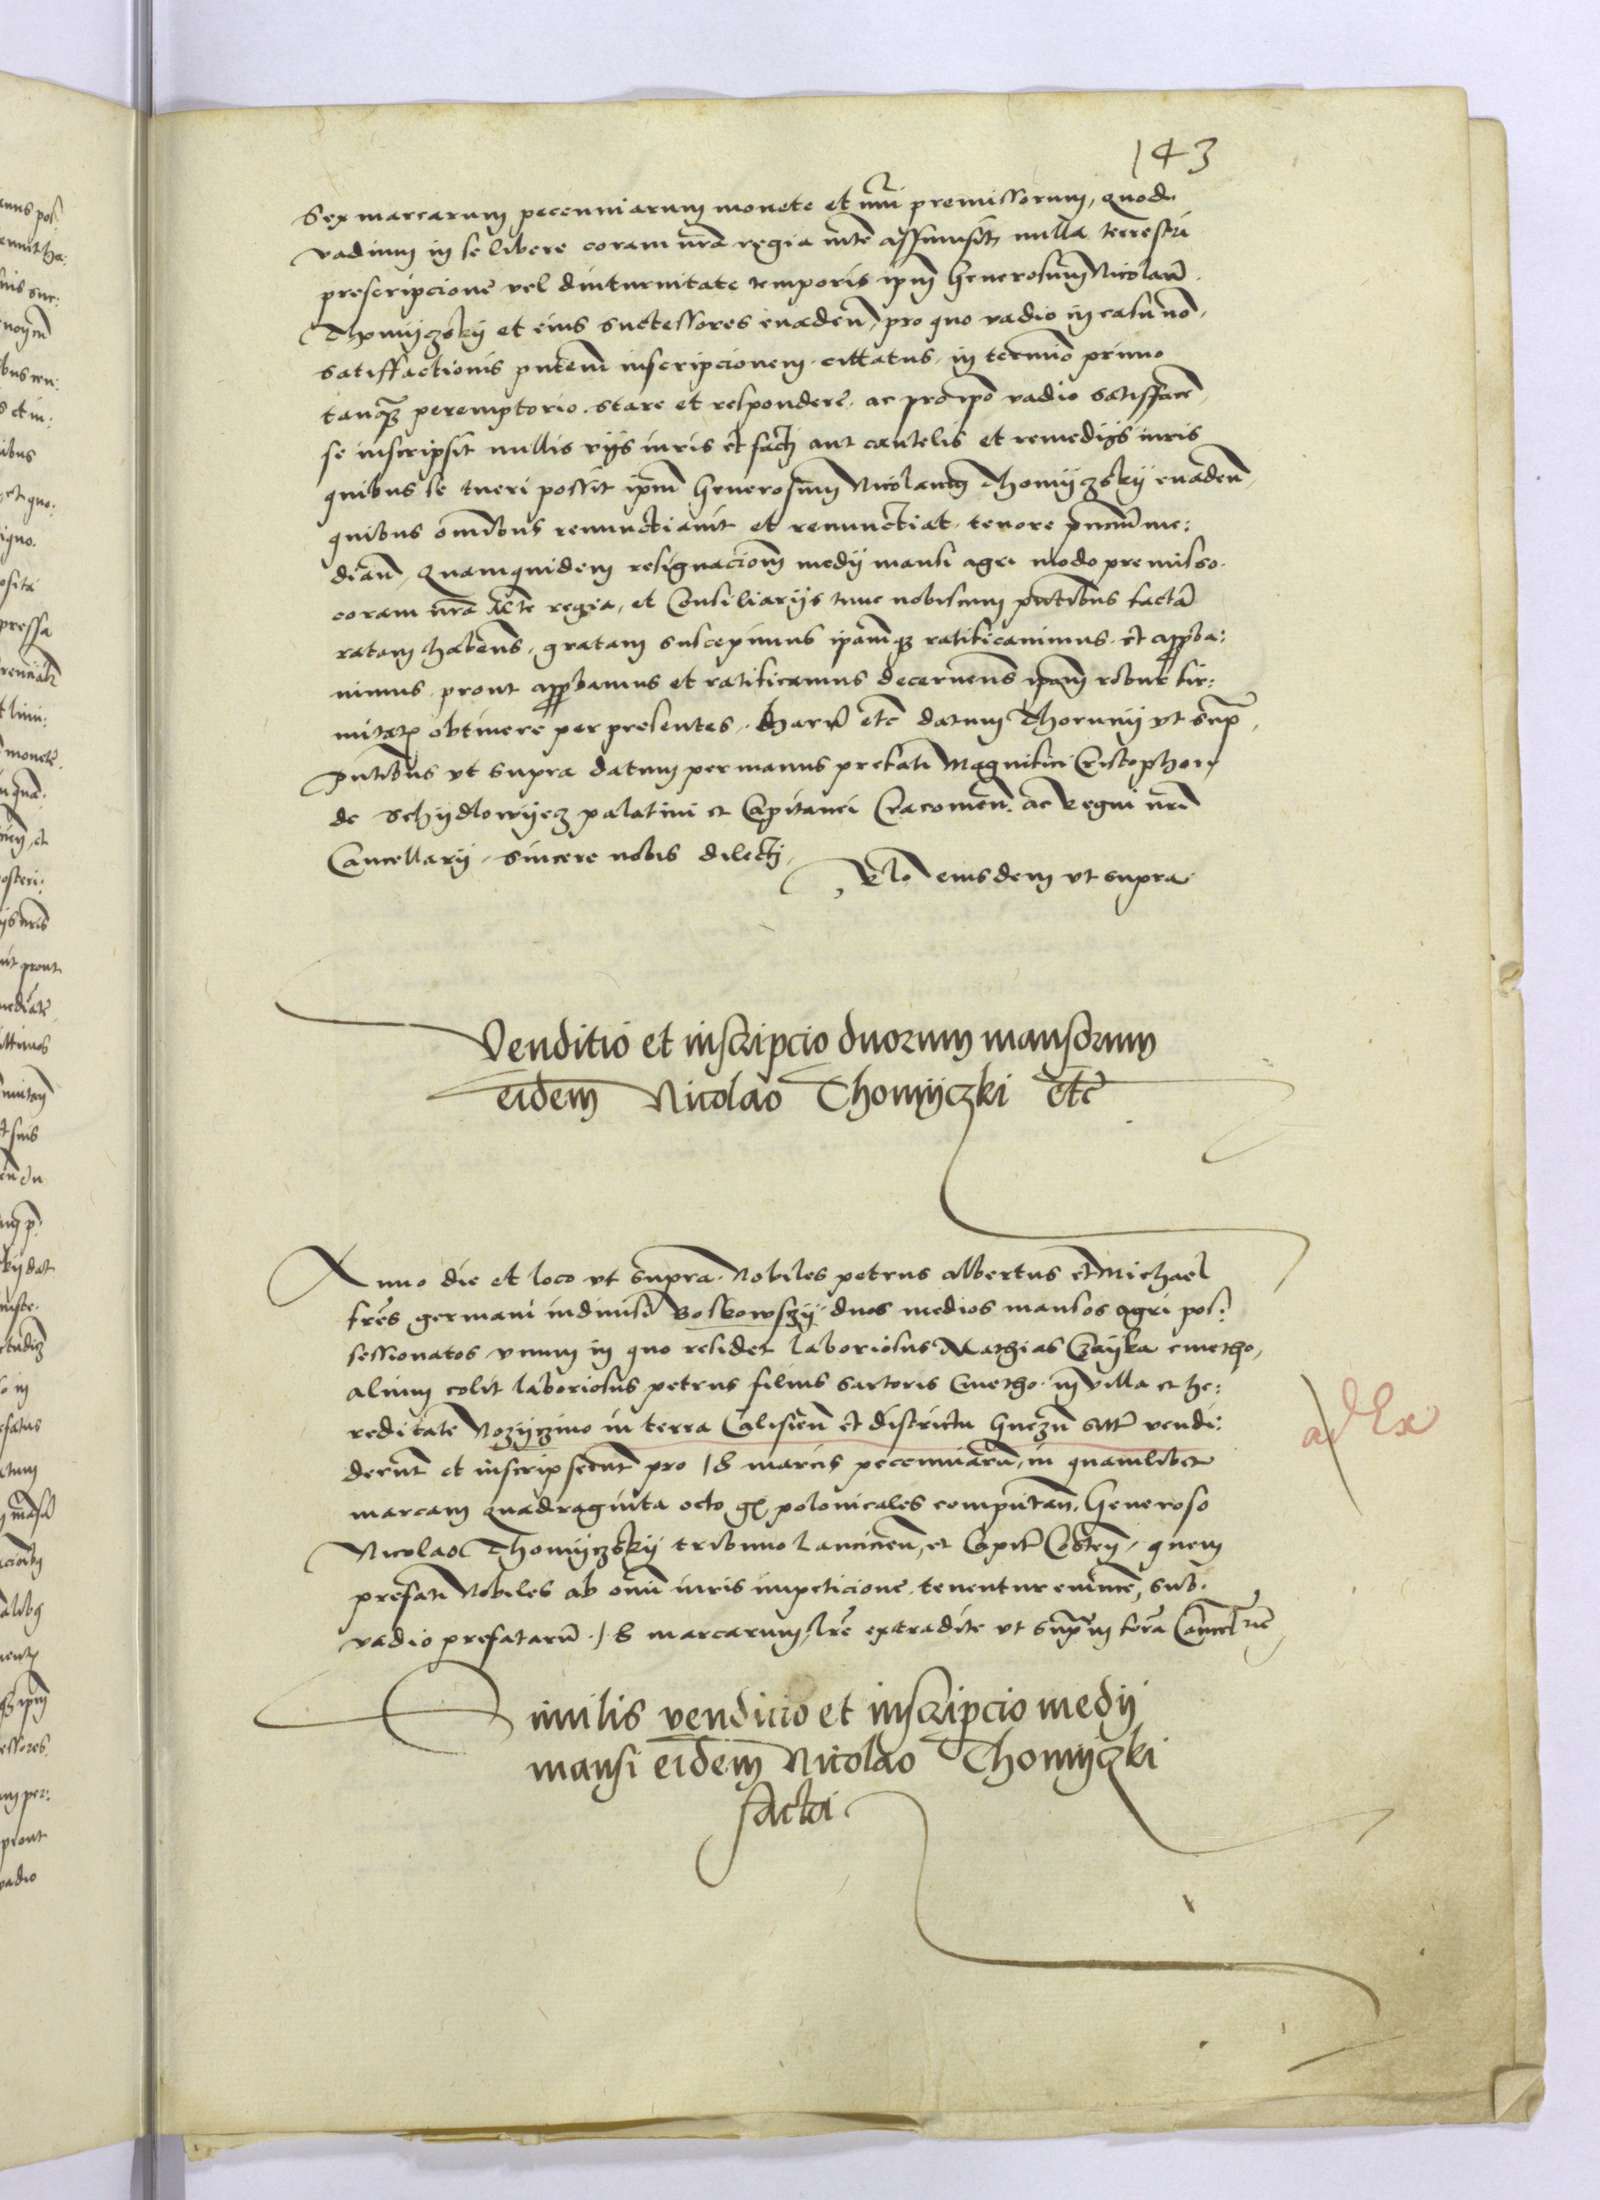 143
Sex marcarum pecunniarum monete et nūi premissorum, quod
vadium in se libere coram nrā regia mte assumsit, nulla terrestri
prescripcione vel diuturnitate temporis ipm Generosum Nicolaū
Thomyczsky et eius successores euadeñ, pro quo vadio in casu nō
satisffactionis pntem inscripcionem cittatus in termīo primo
tanq3 peremptorio stare et respondere, ac pro ipo vadio satisffacē
se inscripsit nullis vijs iuris et facti aut cautelis et remedijs iuris
quibus se tueri possit ipm Generosum Nicolaum Thomyczsky euadeñ
quibus omībus renunctiauit et renunctiat tenore pntium me:
dian, Quamquidem resignacionē medij mansi agri modo premisso
coram nrā Mte regia, et Consiliarijs tunc nobiscum pntibus factā
ratam habens, gratam suscepimus ipamq3 ratificauimus et appba:
uimus prout appbamus et ratificamus decernens ipam robur fir:
mitatis obtinere per presentes. Harū etc datum Thorunij vt supra
Pntibus vt supra datum per manus prefati Magnifici Cristophori
de Schydlowyecz palatini et Capitanei Cracouieñ. ac Regni nrī
Cancellarij sincere nobis dilecti
Relō eiusdem vt supra
Venditio et inscripcio duorum mansorum
eidem Nicolao Thomyczki etc
Anno die et loco vt supra Nobiles petrus albertus et Michael
frēs germani indiuisi Boskowszy duos medios mansos agri pos:
sessionatos vnum in quo residet laboriosus Mathias Czayka cmetho,
alium colit laboriosus petrus filius sartoris Cmetho in villa et he:
reditate Nozyczino in terra Calisieñ et districtu Gnezñ sitt vendi:
derunt et inscripserunt pro 18 marcis pecunniarū, in quamlibet
marcam quadraginta octo gr polonicales computan, Generoso
Nicolao Thomyczsky tribuno Lancicieñ, et Capit Costeñ, quem
prefati Nobiles ab omi iuris impeticione tenentur euincē, sub
vadio prefatarū 18 marcarum, lrē extradite vt supra in forā Cancelrie
ad Ex
Similis vendicio et inscripcio medij
mansi eidem Nicolao Thomyczki
facta